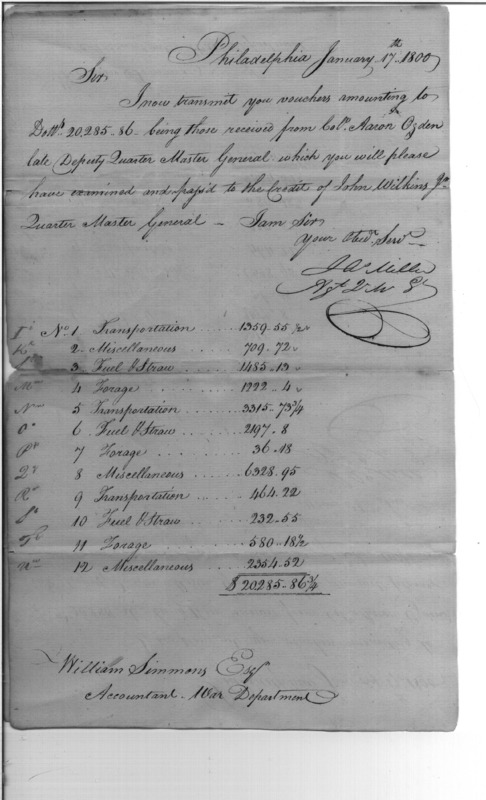 Philadelphia January 17th 1800
Sir,
I now transmit you vouchers amounting to
Dolls. 20,285..86 being those received from Colo. Aaron Ogden
late Deputy Quarter Master General which you will please
have examined and pass'd to the Credit of John Wilkins Jr.
Quarter Master General — I am Sir,
Your Obedt. Servt.
J A Miller
I No. 1 Transportation ...... 1359..55 1/2
K 2 Miscellaneous ...... 709..72
3 Fuel & Straw ...... 1485..13
M 4 Forage ...... 1222..4
N 5 Transportation ...... 3315..73 3/4
O 6 Fuel & Straw ...... 2197..8
P 7 Forage ...... 36..18
Q 8 Miscellaneous ...... 6328..95
R 9 Transportation ...... 464..22
S 10 Fuel & Straw ...... 232..55
T 11 Forage ...... 580..18 1/2
U 12 Miscellaneous ...... 2354..52
$ 20285..86 3/4
William Simmons Esqr
Accountant. War Department